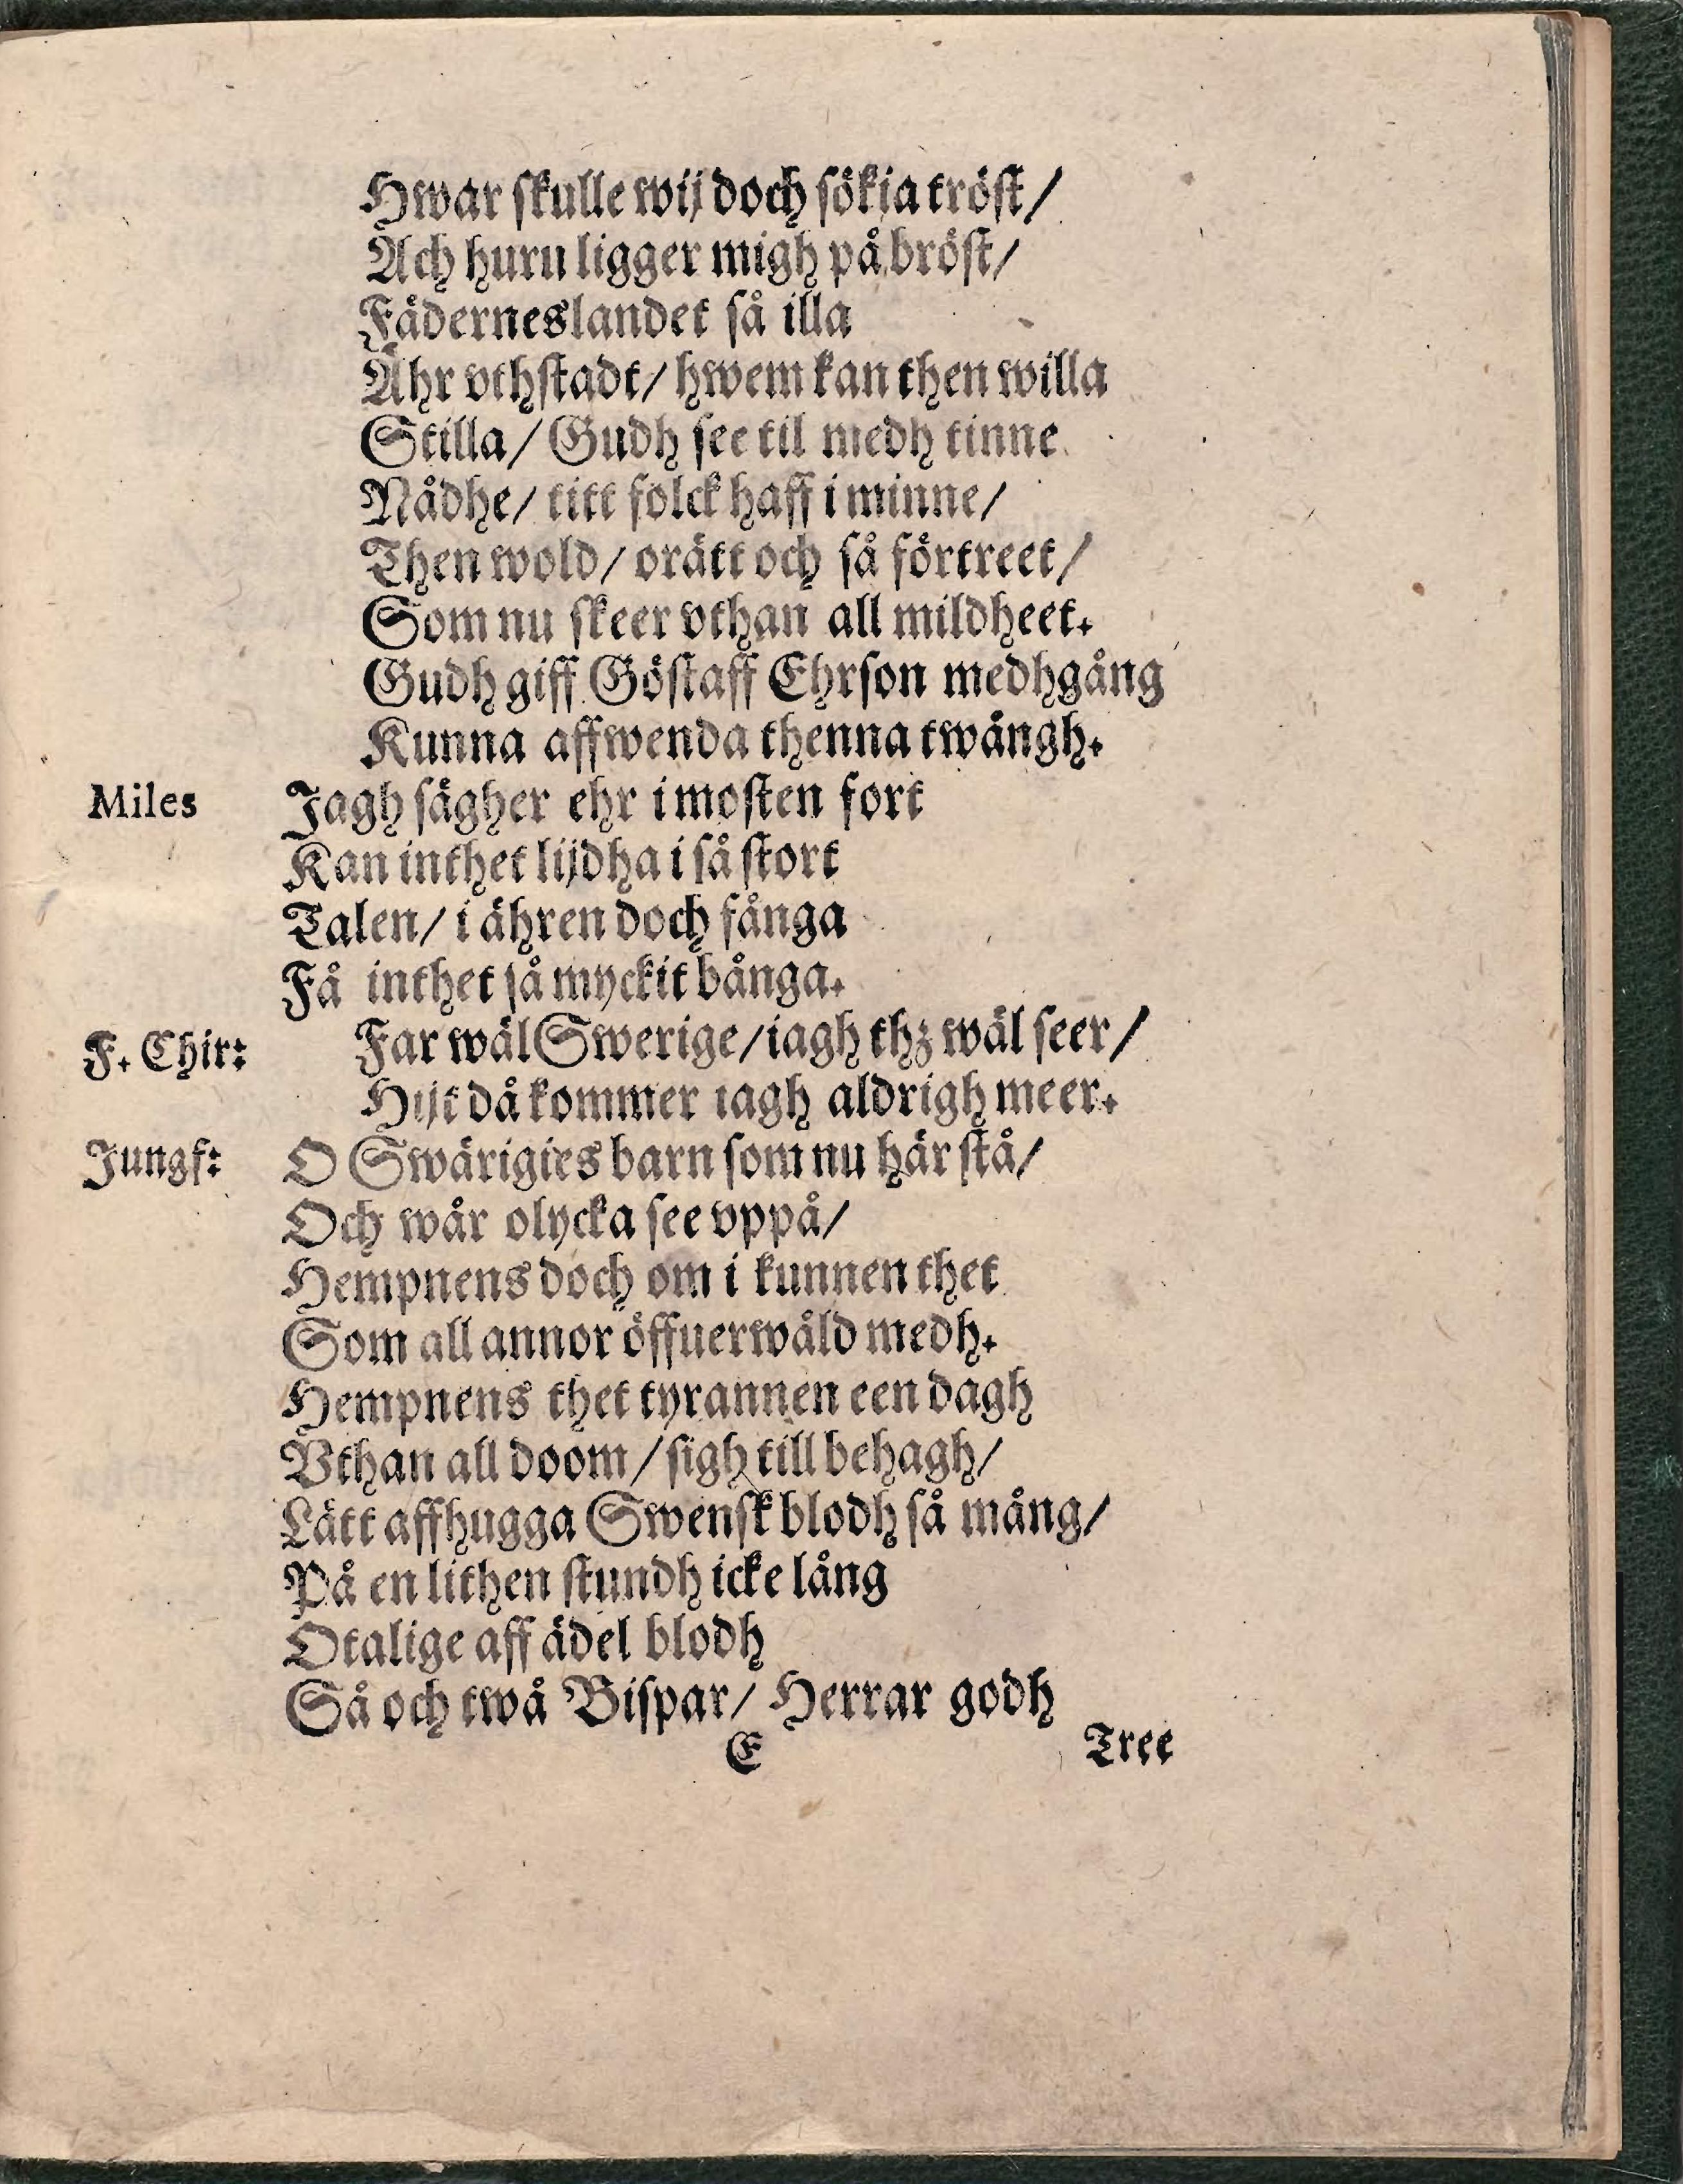 Hwar skulle wij doch sökia tröst/
Ach huru ligger migh på bröst/
Fäderneslandet så illa
Ähr vthstadt/ hwem kan then willa
Stilla/ Gudh see til medh tinne
Nådhe/ titt folck haff i minne/
Then wold/ orätt och så förtreet/
Som nu skeer vthan all mildheet.
Gudh giff Göstaff Ehrson medhgång
Kunna affwenda thenna twångh.
Miles Jagh sägher ehr i mosten fort
Kan inthet lijdha i så stort
Talen/ i ähren doch fånga
Få inthet så myckit bånga.
F. Chir: Far wäl Swerige/ iagh thz wäl seer/
Hijt då kommer iagh aldrigh meer.
Jungf: O Swärigies barn som nu här stå/
Och wår olycka see vppå/
Hempnens doch om i kunnen thet
Som all annor öffuerwåld medh.
Hempnens thet tyrannen een dagh
Vthan all doom/ sigh till behagh/
Lätt affhugga Swensk blodh så mång/
På en lithen stundh icke lång
Otalige aff ädel blodh
Så och twå Bispar/ Herrar godh
E Tree